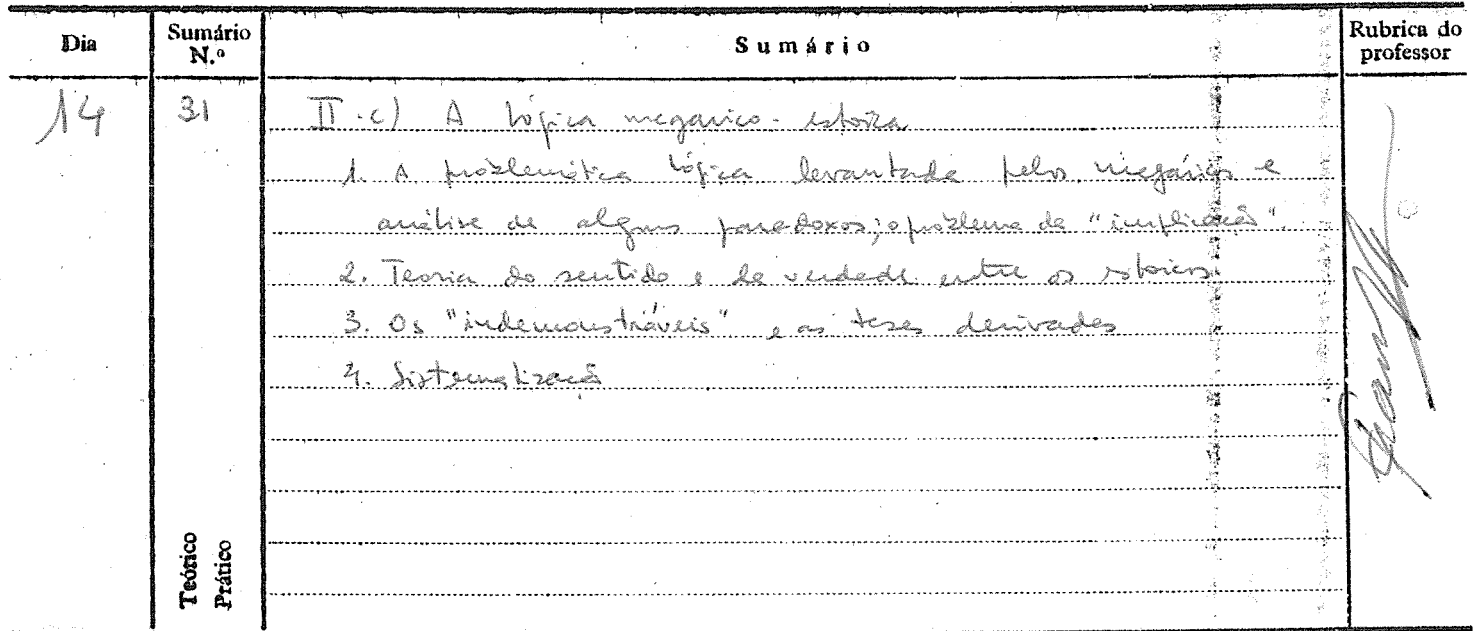 Dia Sumário N.º Sumário Rubrica do professor
14 31 II.c) A lógica megárico-estoica
1. A problemática lógica levantada pelos megáricos e
análise de alguns paradoxos; o problema da "implicação".
2. Teoria do sentido e da verdade entre os estoicos
3. Os "indemonstráveis" e as teses derivadas
4. Sistematização
Teórico
Prático